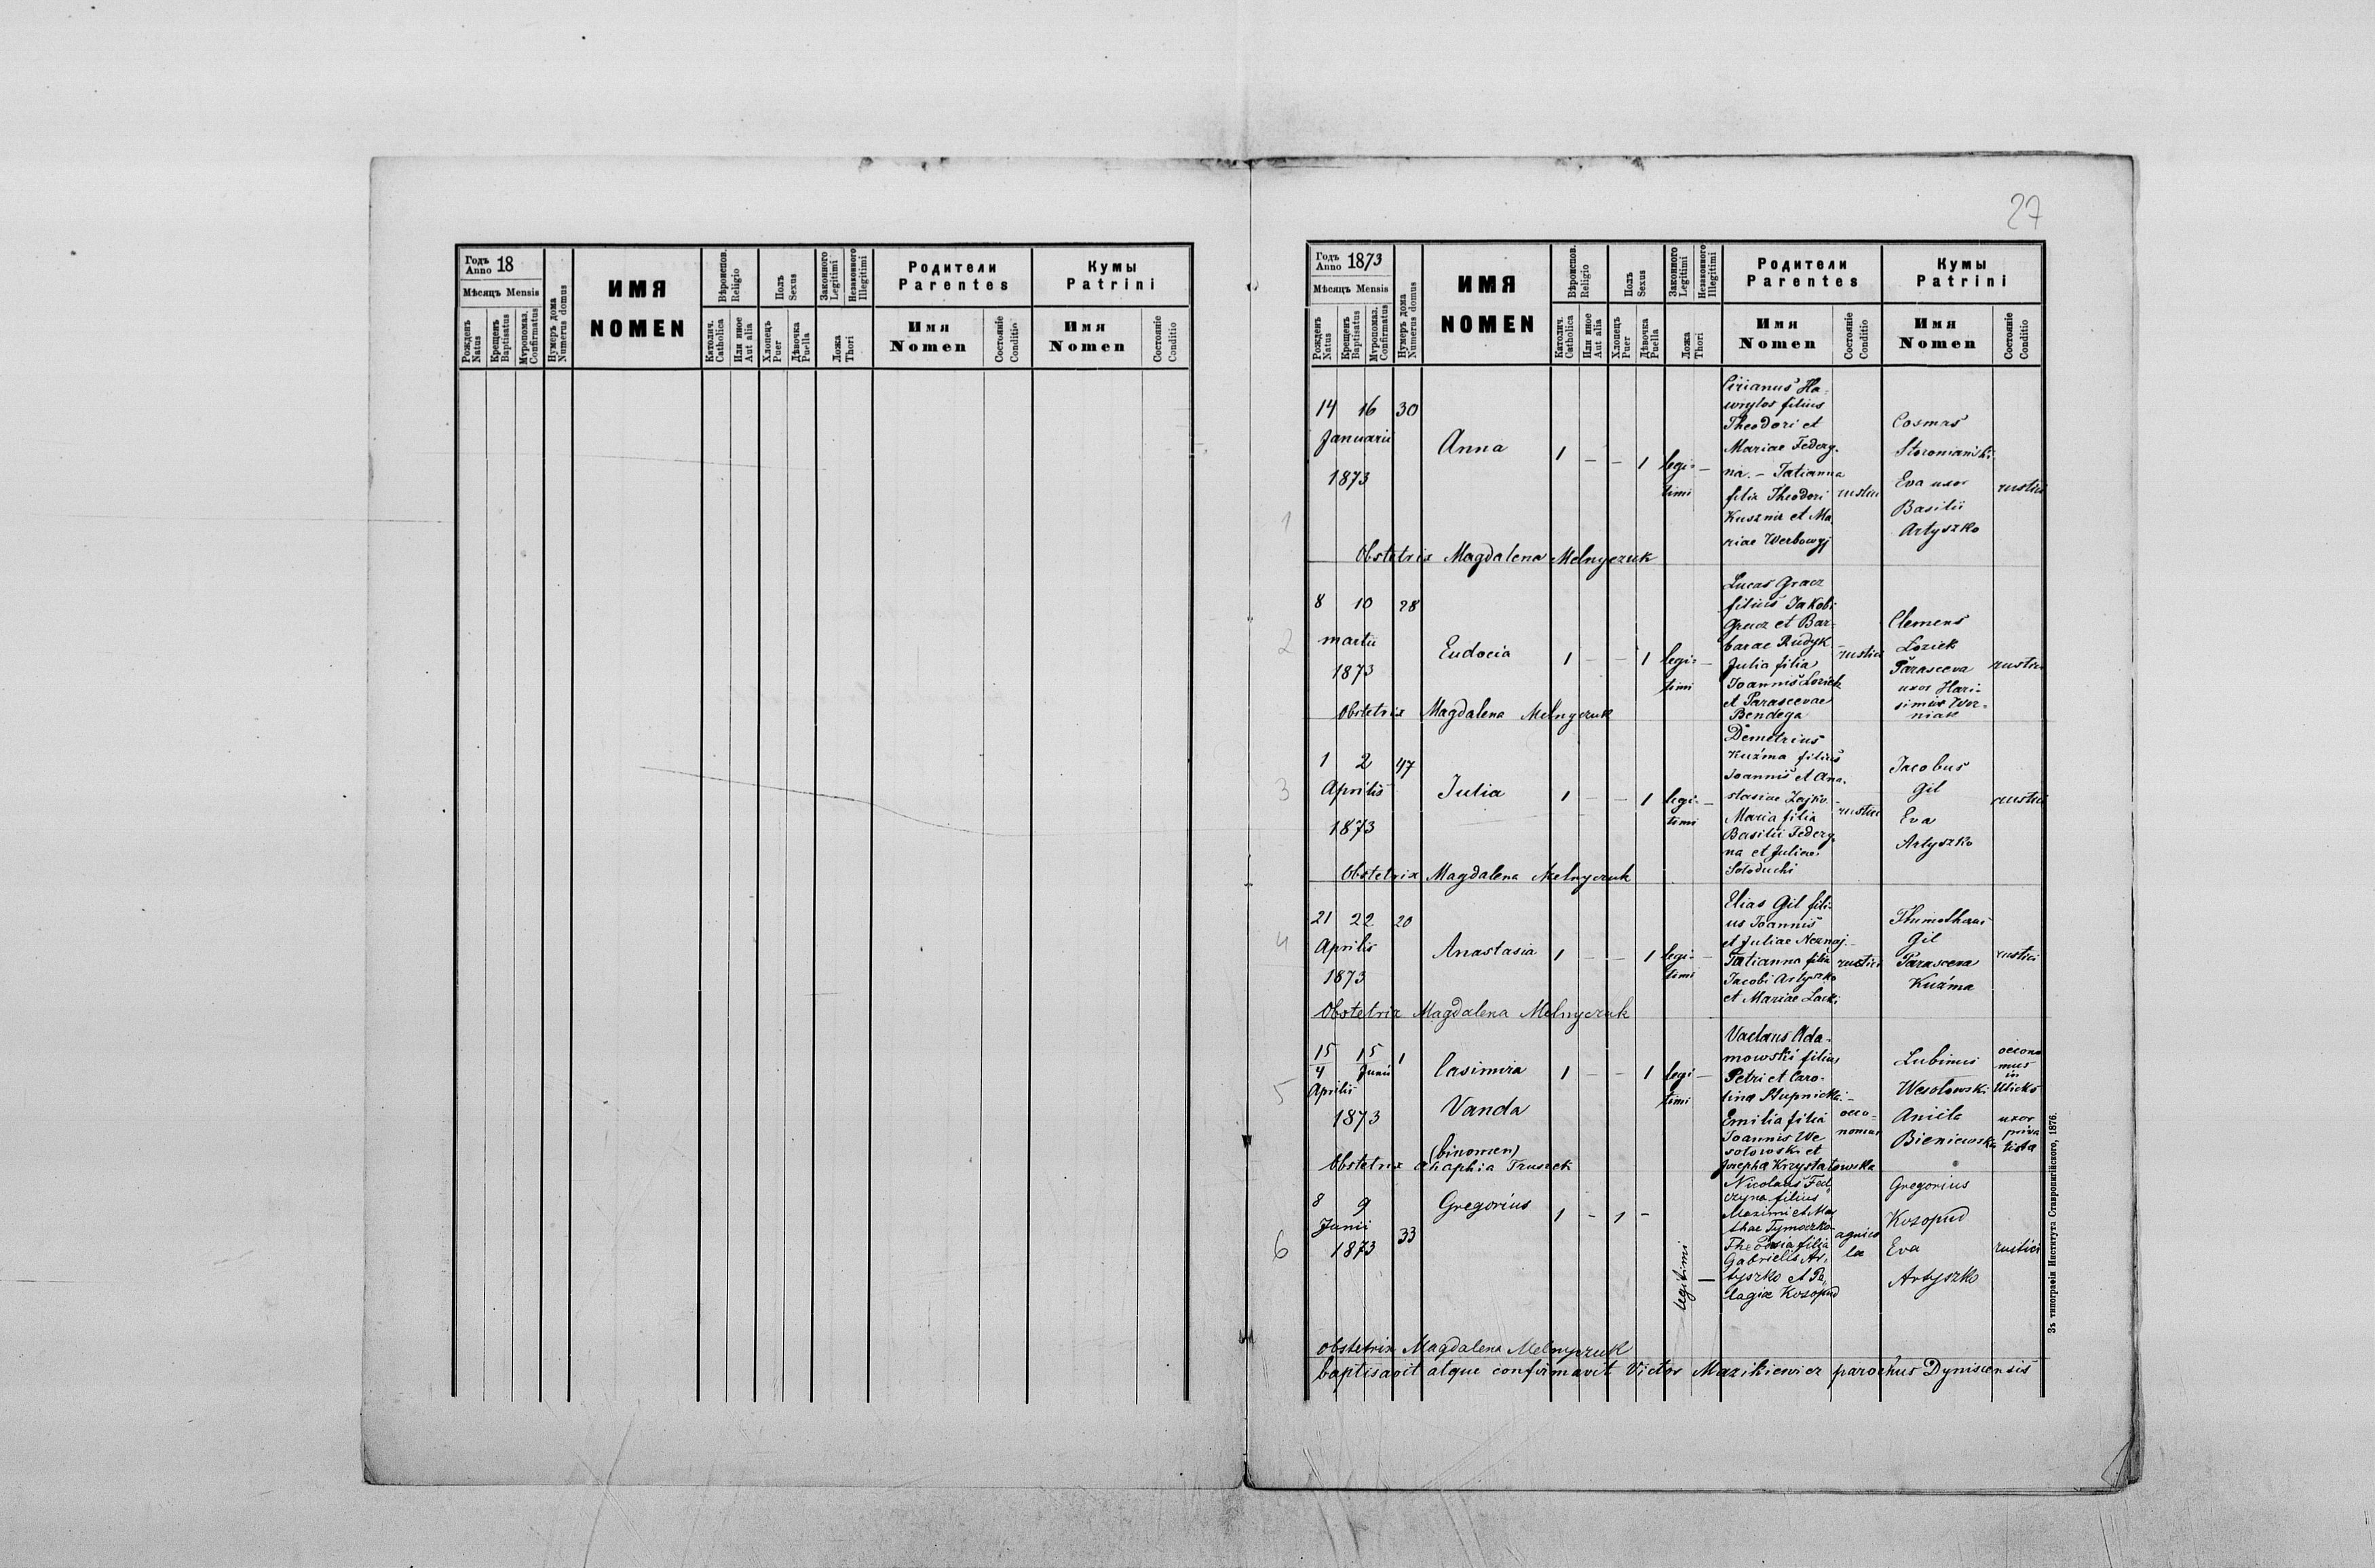 27
Годъ Anno 18
Мѣсяцъ Mensis
Рожденъ Natus
Крещенъ Baptisatus
Муропомаз. Confirmatus
Нумеръ дома Numerus domus
ИМЯ
NOMEN
Вѣроиспов. Religio
Католич. Catholica
Или иное Aut alia
Полъ Sexus
Хлопецъ Puer
Дѣвочка Puella
Законного Legitimi
Незаконного Illegitimi
Ложа Thori
Родители
Parentes
Имя
Nomen
Состоянiе Conditio
Кумы
Patrini
Имя
Nomen
Состоянiе Conditio
Годъ Anno 1873
Мѣсяцъ Mensis
Рожденъ Natus
Крещенъ Baptisatus
Муропомаз. Confirmatus
Нумеръ дома Numerus domus
ИМЯ
NOMEN
Вѣроиспов. Religio
Католич. Catholica
Или иное Aut alia
Полъ Sexus
Хлопецъ Puer
Дѣвочка Puella
Законного Legitimi
Незаконного Illegitimi
Ложа Thori
Родители
Parentes
Имя
Nomen
Состоянiе Conditio
Кумы
Patrini
Имя
Nomen
Состоянiе Conditio
1
14 16 30
Januarii
1873
Anna
1 - - 1 legi- -
timi
Cirianus Ha-
wrylos filius
Theodori et
Mariae Federy-
na. - Tatianna
filia Theodori
Kusznir et Ma
riae Werbowyj
rustici
Cosmas
Storonianski
Eva uxor
Basilii
Artyszko
rustici
Obstetrix Magdalena Melnyczuk
2
8 10 28
martii
1873
Eudocia
1 - - 1 legi- -
timi
Lucas Gracz
filius Jakobi
Gracz et Bar-
barae Rudyk
Julia filia
Joannis Lozick
et Parascevae
Bendega
rustici
Clemens
Lozick
Parasceva
uxor Hari-
simus Wor-
niak
rustici
Obstetrix Magdalena Melnyczuk
3
1 2 47
Aprilis
1873
Julia
1 - - 1 legi- -
timi
Demetrius
Kuźma filius
Joannis et Ana-
stasiae Zajko -
Maria filia
Basilii Federy-
na et Juliae
Sołoduchi
rustici
Jacobus
Gil
Eva
Artyszko
rustici
Obstetrix Magdalena Melnyczuk
4
21 22 20
Aprilis
1873
Anastasia
1 - - 1 legi- -
timi
Elias Gil fili-
us Joannis
et Juliae Neznaj -
Tatianna filia
Jacobi Artyszko
et Mariae Lack
rustici
Thimotheus
Gil
Parasceva
Kuźma
rustici
Obstetrix Magdalena Melnyczuk
5
15/4 15 1
Junii
Aprilis
1873
Casimira
Vanda
(binomen)
1 - - 1 legi -
timi
Vaclaus Ada-
mowski filius
Petri et Caro-
lina Stupnicki -
Emilia filia
Joannis We
sołowski et
Josepha Krzyształowska
oeco-
nomus
Lubinus
Wesołowski
Aniela
Bieniewska
oecono
mus
in
Ulicko
uxor
priva
tista
Obstetrix Ahaphia Truszek
6
8 9
Junii
1873
33
Gregorius
1 - 1 -
legitimi -
Nicolaus Fed
czyna filius
Maximi et Mar
thae Tymoczko -
Theodosia filia
Gabrielis Ar-
tyszko et Pe
lagiae Kosopud
agrico
lae
Gregorius
Kosopud
Eva
Artyszko
rustici
obstetrix Magdalena Melnyczuk
baptisavit atque confirmavit Victor Mazikiewicz parochus Dyniscensis
Зъ типографiи Института Ставропигiйского, 1876.